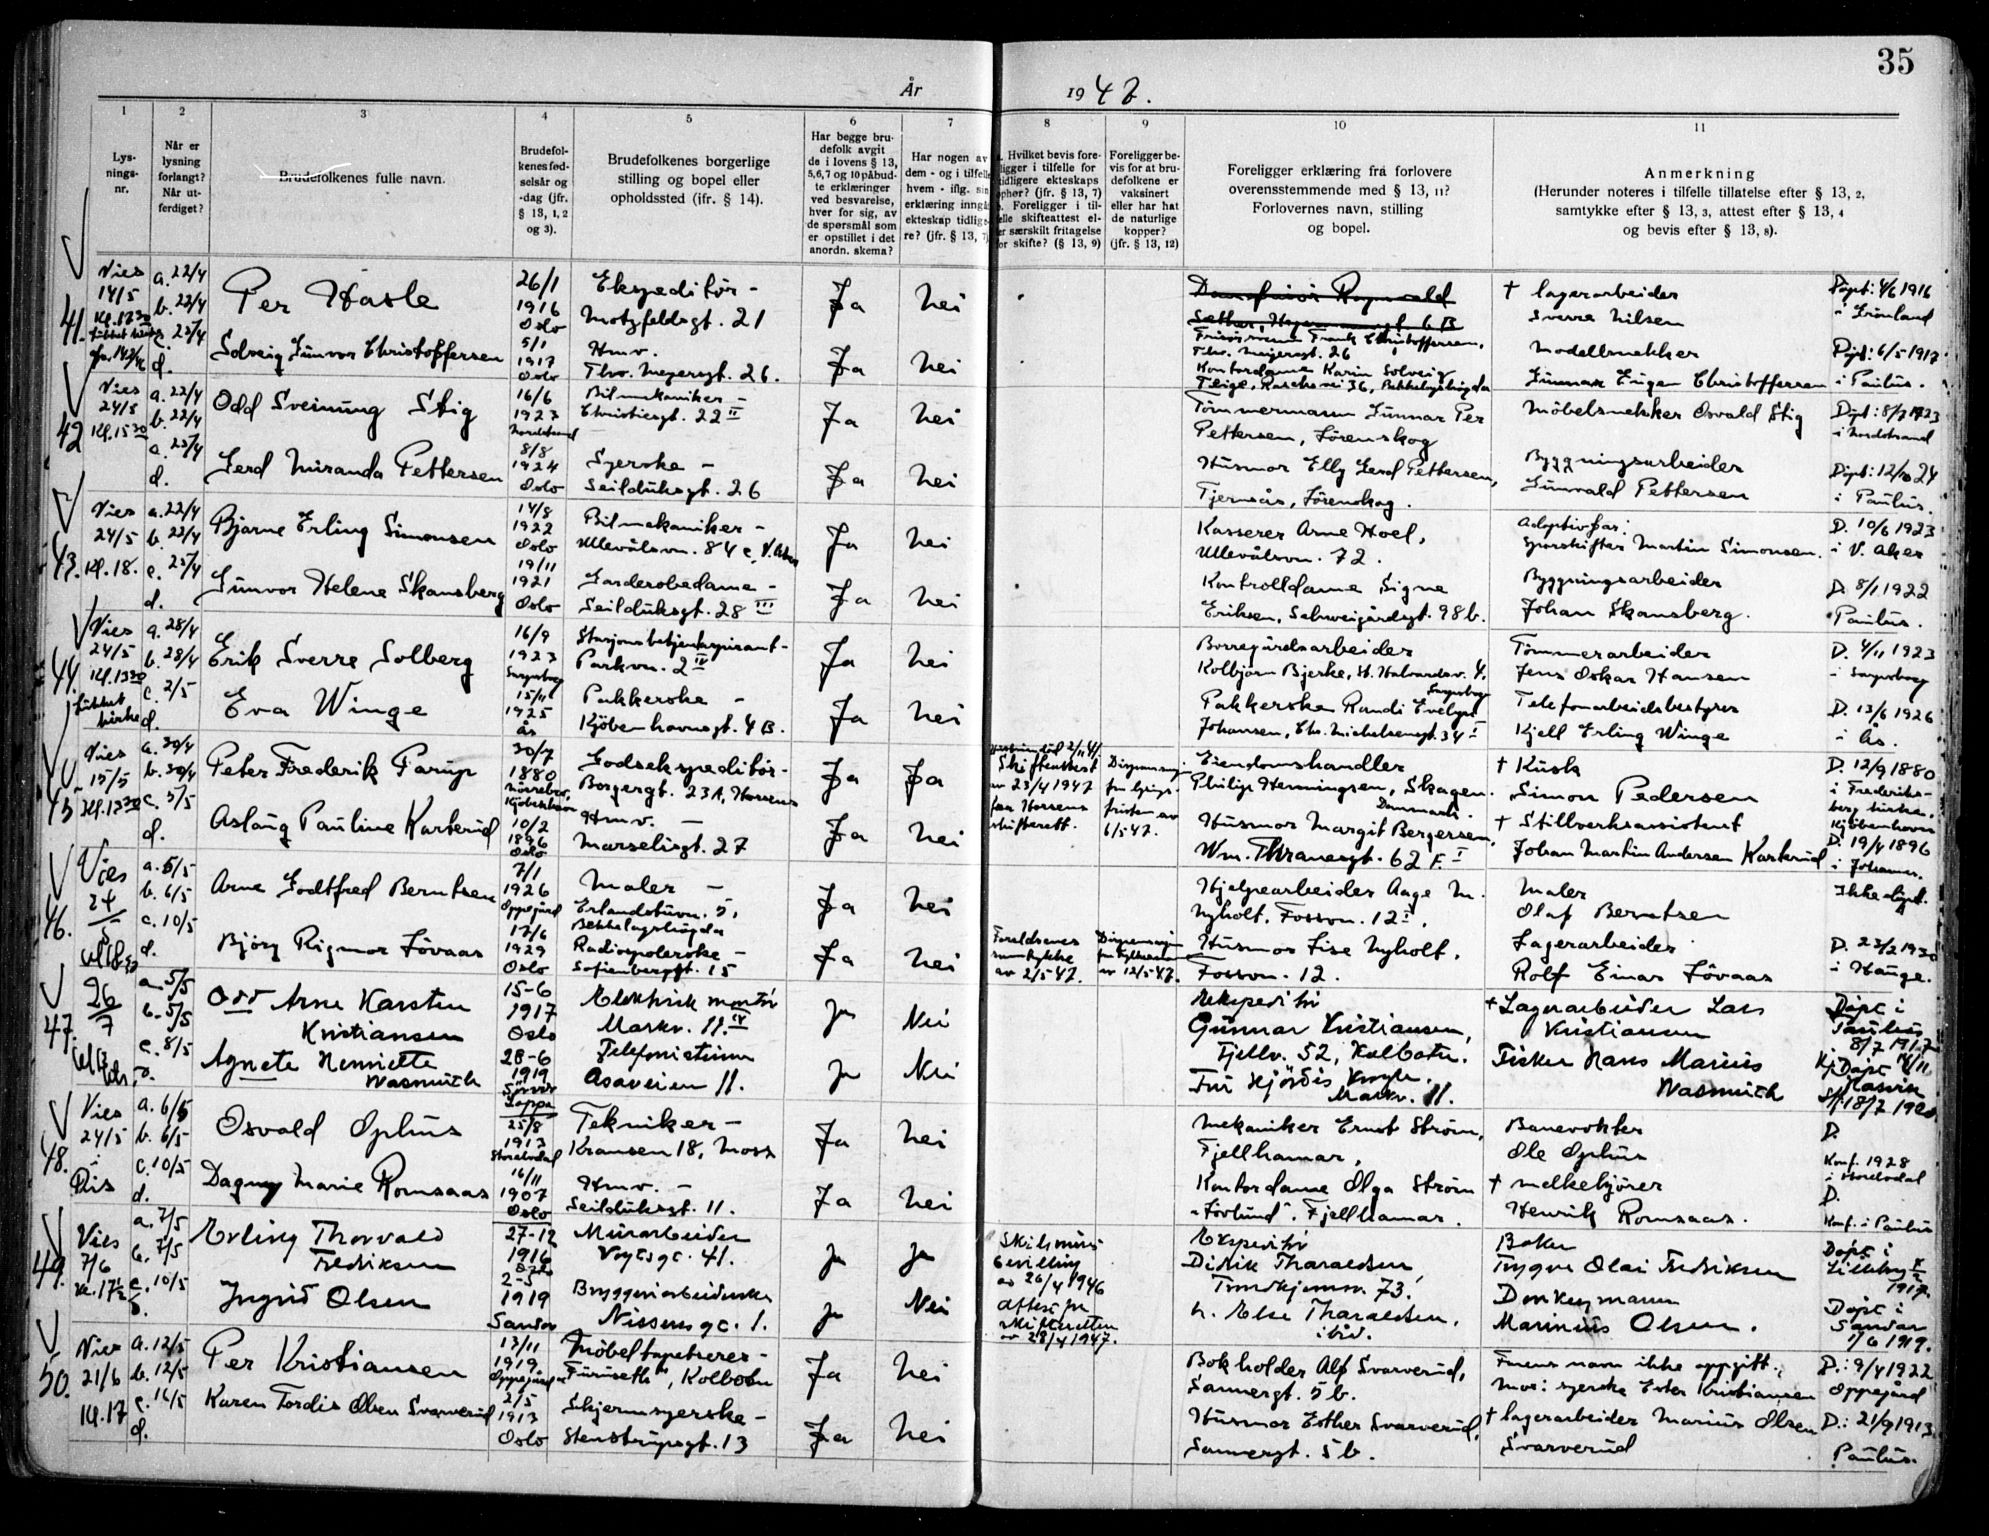 35
År 1947.
1 2 3 4 5 6 7 8 9 10 11
Lys-
nings-
nr.
Når er
lysning
forlangt?
Når ut-
ferdiget?
Brudefolkenes fulle navn.
Brudefol-
kenes fød-
selsår og
-dag (jfr.
§ 13, 1, 2
og 3).
Brudefolkenes borgerlige
stilling og bopel eller
opholdssted (jfr. § 14).
Har begge bru-
defolk avgit
de i lovens § 13,
5,6,7 og 10 påbud-
te erklæringer
ved besvarelse,
hver for sig, av
de spørsmål som
er opstillet i det
anordn. skema?
Har nogen av
dem - og i tilfelle
hvem - iflg. sin
erklæring inngå
ekteskap tidlige-
re? (jfr. § 13, 7)
a. Hvilket bevis fore-
ligger i tilfelle for
tidligere ekteskaps
ophør? (jfr. § 13, 7)
b. Foreligger i til-
felle skifteattest el-
ler særskilt fritagelse
for skifte? (§ 13, 9)
Foreligger be-
vis for at bru-
defolkene er
vaksinert
eller har hat
de naturlige
kopper?
(jfr. § 13, 12)
Foreligger erklæring fra forlovere
overensstemmende med § 13, 11?
Forlovernes navn, stilling
og bopel.
Anmerkning
(Herunder noteres i tilfelle tillatelse efter § 13, 2,
samtykke efter § 13, 3, attest efter § 13, 4
og bevis efter § 13, 8).
41.
Vies
14/5
a. 22/4
b. 22/4
c. 25/4
d.
Per Hasle
26/1
1916
Oslo
Ekspeditör -
Motzfeldtsgt. 21
Ja
Nei
† lagerarbeider
Sverre Nilsen
Döpt: 4/6 1916
i Grönland
Solveig Gunvor Christoffersen
5/1
1917
Oslo
Hmv.
Thv. Meyersgt. 26.
Ja
Nei
Frank Christoffersen,
Thv. Meyersgt. 26
Kontordame Karin Solveig
Modellsnekker
Gunnar Eugen Christoffersen
Döpt: 6/5 1917
i Paulus.
42
Vies
24/5
Kl. 15 30
a. 22/4
b. 22/4
c. 25/4
d.
Odd Sveinung Stig
16/6
1923
Nordstrand
Bilmekaniker -
Christiesgt. 22 II
Ja
Nei
Tömmermann Gunnar Per
Pettersen, Lörenskog
Möbelsnekker Osvald Stig
i Nordstrand
Gerd Miranda Pettersen
8/8
1924
Oslo
Syerske -
Seilduksgt. 26
Ja
Nei
Husmor Elly Gerd Pettersen,
Fjernsås, Lörenskog.
Byggningsarbeider
Gunvald Pettersen
i Paulus.
43.
Vies
24/5
Kl. 18.
a. 22/4
b. 22/4
c. 25/4
d.
Bjarne Erling Simonsen
14/8
1922
Oslo
Bilmekaniker -
Ullevålsvn. 84 c, V. Aker
Ja
Nei
Kasserer Arne Hoel,
Ullevålsvn. 72.
Adoptivfar:
Sporskifter Martin Simonsen.
D. 10/6 1923
i V. Aker
Gunvor Helene Skansberg
19/11
1921
Oslo
Garderobedame -
Seilduksgt. 28 III
Ja
Nei
Kontrolldame Signe
Eriksen, Schweigårdsgt. 98 b.
Byggningsarbeider
Johan Skansberg.
D. 8/1 1922
Paulus.
44.
Vies
24/5
Kl. 13 30
Lukket
kirke
a. 28/4
b. 28/4
c. 2/5
d.
Erik Sverre Solberg
16/9
1923
Sarpsborg
Stasjonsbetjentaspirant -
Parkvn. 2 IV
Ja
Nei
Borregårdsarbeider
Kolbjörn Bjerke, St. Halvardsv. 4,
Sarpsborg
Tömmerarbeider
Jens Oskar Hansen
D. 4/11 1923
i Sarpsborg
Eva Winge
15/11
1925
Ås
Pakkerske -
Kjöbenhavnsgt. 4 B.
Ja
Nei
Pakkerske Randi Evelyn
Johansen, Chr. Michelsensgt. 34 I
Telefonarbeidsbestyrer
Kjell Erling Winge
D. 13/6 1926
i Ås.
45
Vies
15/5
Kl. 13 30
a. 30/4
b. 30/4
c. 5/5
d.
Peter Frederik Farup
30/7
1880
Nörrebro,
Kjöbenhavn
Godsekspeditör -
Borgergt. 23 A, Horsens
Ja
Ja
Skifteattest
av 23/4 1947
fra Horsens
skifterett.
Dispensasj.
fra lysnings-
fristen av
6/5 47.
Eiendomshandler
Philip Henningsen, Skagen.
Danmark.
† Kusk
Simon Pedersen
D. 12/9 1880
i Frederiks-
berg kirke,
Kjöbenhavn
Aslaug Pauline Karterud
10/2
1896
Oslo
Hmv. -
Marseliisgt. 27
Ja
Nei
Husmor Margit Bergersen,
Wm. Thranesgt. 62 F. I
† Stillverksassistent
Johan Martin Andersen Karterud
D. 19/4 1896
i Johannes.
46.
Vies
24/5
a. 5/5
b. 6/5
c. 10/5
d.
Arne Godtfred Berntsen
7/1
1926
Oppegård
Maler -
Erlandstuvn. 5,
Bekkelagshögda
Ja
Nei
Hjelpearbeider Aage M.
Nyholt, Fossvn. 12 I.
Maler
Olaf Berntsen
Ikke döpt.
Björg Rigmor Lövaas
17/6
1929
Oslo
Radiospolerske -
Sofienberggt. 15
Ja
Nei
Foreldrenes
samtykke
av 2/5 47.
av 12/5 47.
Husmor Lise Nyholt,
Fossvn. 12.
Lagerarbeider
Rolf Einar Lövaas
D. 23/3 1930
i Hauge.
47.
26/7
a. 5/5
b. 5/5
c. 8/5
d.
Odd Arne Karsten
Kristiansen
15-6
1917
Oslo
Elektrisk montör
Markv. 11. IV
Ja
Nei
Ekspeditör
Gunnar Kristiansen,
Fjellv. 52, Kolbotn.
† Lagerarbeider Lars
Kristiansen
Döpt i
Paulus
8/7 1917
Agnete Henriette
Wasmuth
28-6
1919
Loppa
Telefonistinne
Åsaveien 11.
Ja
Nei
Fru Hjördis
Markv. 11.
Fisker Hans Marius
Wasmuth
48.
Vies
24/5
i
Ris
a. 6/5
b. 6/5
c. 10/5
d.
Osvald Ophus
25/8
1913
Storelvdal
Tekniker -
Kransen 18, Moss
Ja
Nei
Mekaniker Ernst Ström,
Fjellhamar,
Banevokter
Ole Ophus
D.
Konf. 1928
i Storelvdal
Dagny Marie Romsaas
16/11
1907
Oslo
Hmv. -
Seilduksgt. 11.
Ja
Nei
Kontordame Olga Ström
"Furlund". Fjellhamar.
† Melkekjörer
Henrik Romsaas.
D.
Konf. i Paulus
49.
Vies
7/6
Kl. 17 1/2
a. 7/5
b. 7/5
c. 10/5
d.
Erling Thorvald
Fredriksen
27-12
1916
Oslo
Murarbeider
Vogtsgt. 41.
Ja
Ja
Skilsmisse
bevilling
av 26/4 1946
Attest fra
skifteretten
av 28/4 1947.
Ekspeditör
Didrik Tharaldsen,
Trondhjemsv. 73.
Baker
Trygve Olai Fredriksen
Döpt i
Lilleborg
1917.
Ingrid Olsen
2-5
1919
Sandar
Bryggeriarbeiderske
Nissensgt. 1.
Ja
Nei
Else Tharaldsen,
ibid.
Donkeymann
Marinius Olsen.
Döpt i
Sandar
1/6 1919.
50.
Vies
21/6
Kl. 17
a. 12/5
b. 12/5
c. 16/5
d.
Per Kristiansen
13/11
1919
Oppegård
Möbeltapetserer -
Furuseth, Kolbotn
Ja
Nei
Bokholder Alf Svarverud,
Sannergt. 5 b.
Farens navn ikke oppgitt.
Mor: syerske Ester Kristiansen
D.: 9/4 1922
Oppegård
Karen Tordis Olsen Svarverud
2/5
1913
Oslo
Skjermsyerske -
Stenstrupsgt. 13
Ja
Nei
Husmor Esther Svarverud,
Sannergt. 5 b.
† lagerarbeider Marius Olsen
Svarverud
D.: 21/9 1913.
Paulus.